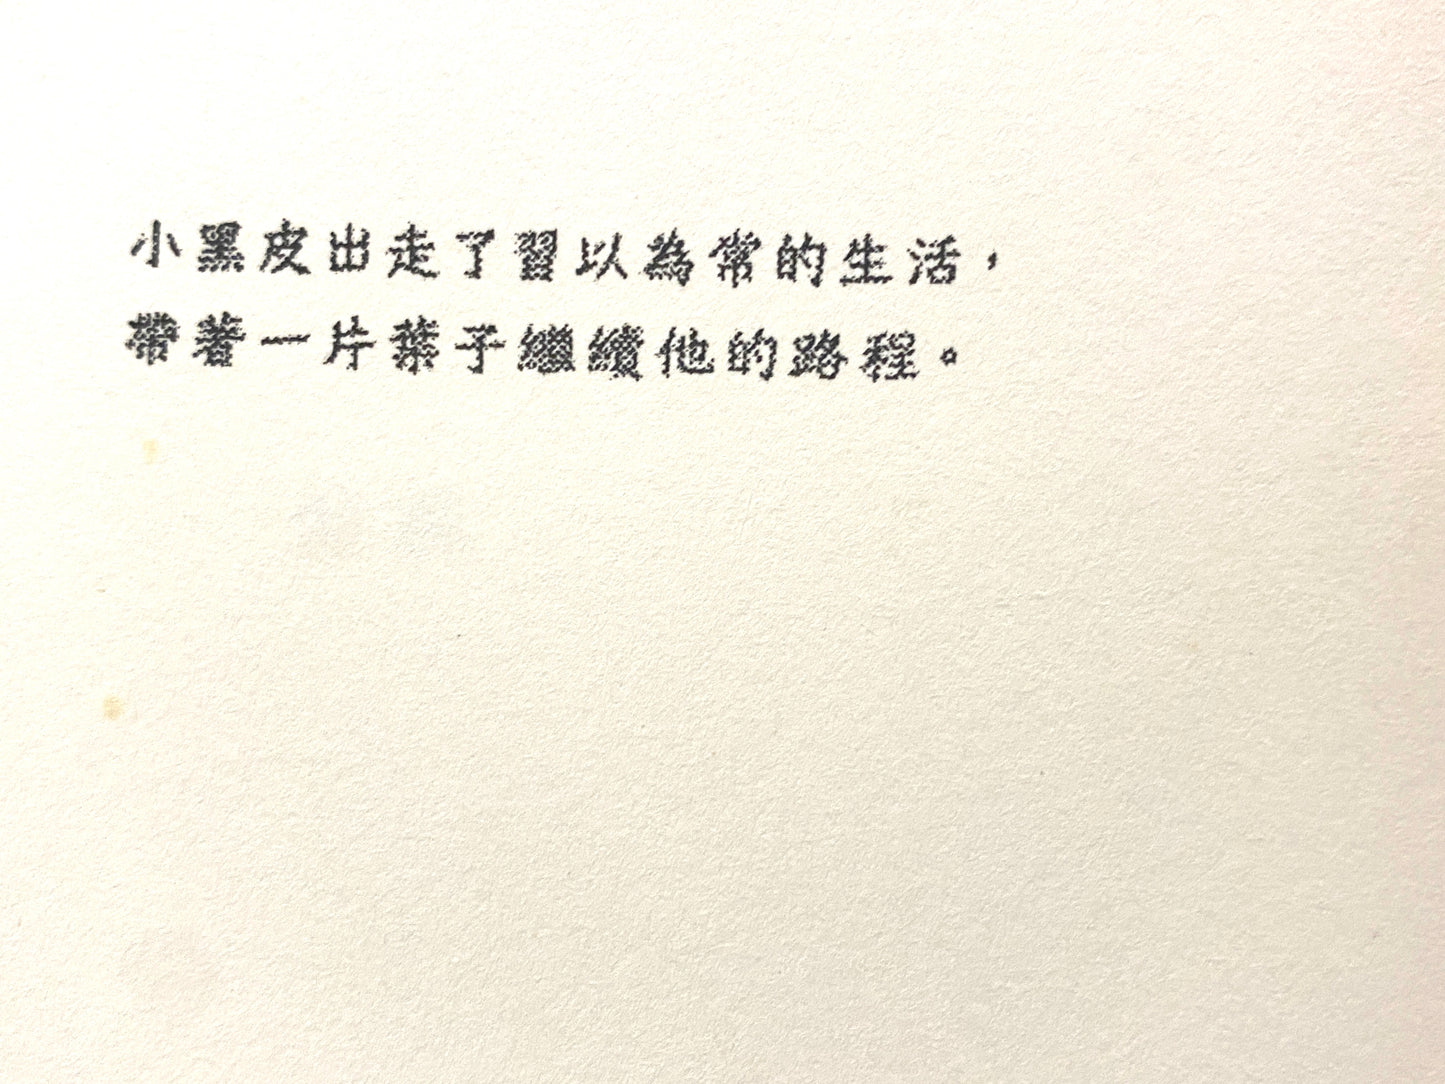 小黑皮出走了習以為常的生活，
帶著一片葉子繼續他的路程。